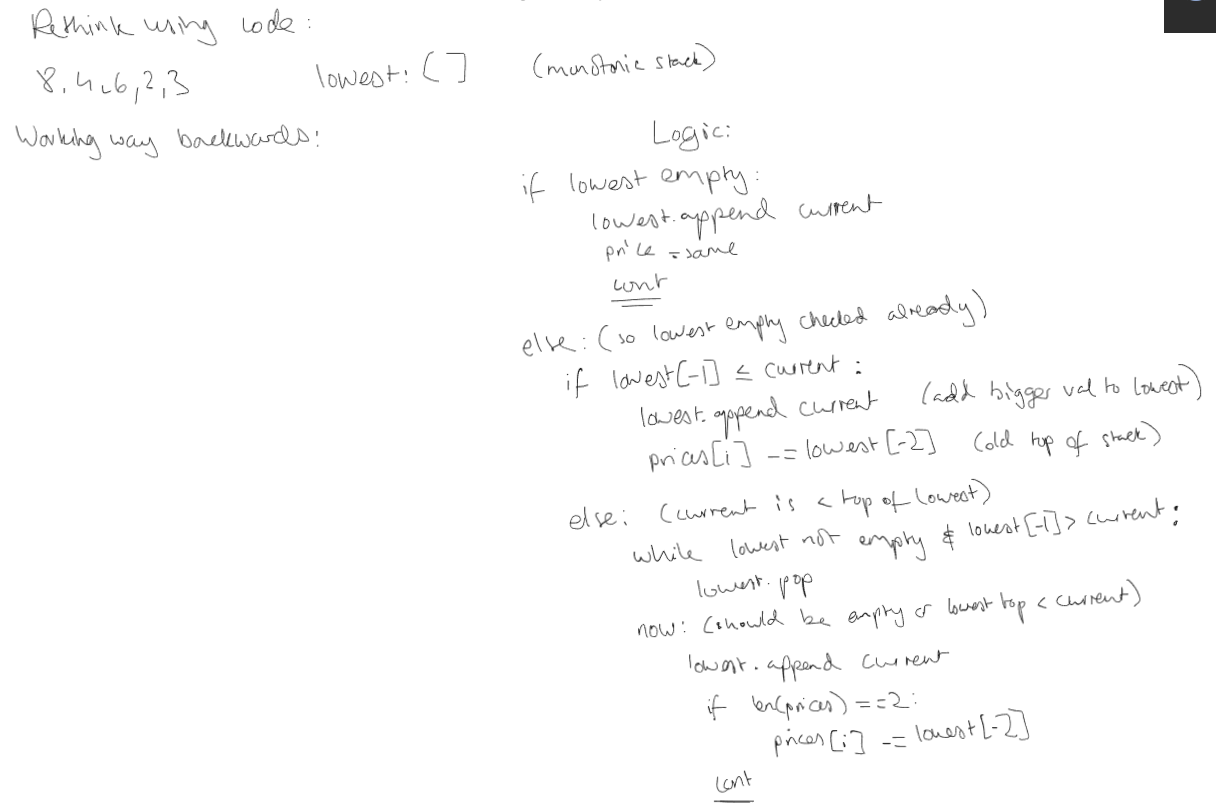 Rethink using code:
8,4,6,2,3 lowest: [] (monotonic stack)
Working way backwards:
Logic:
if lowest empty:
lowest.append current
price = same
cont
else: (so lowest empty checked already)
if lowest[-1] ≤ current:
lowest.append current (add bigger val to lowest)
prices[i] -= lowest[-2] (old top of stack)
else: (current is < top of lowest)
while lowest not empty & lowest[-1] > current:
lowest.pop
now: (should be empty or lowest top < current)
lowest.append current
if len(prices) == 2:
prices[i] -= lowest[-2]
cont